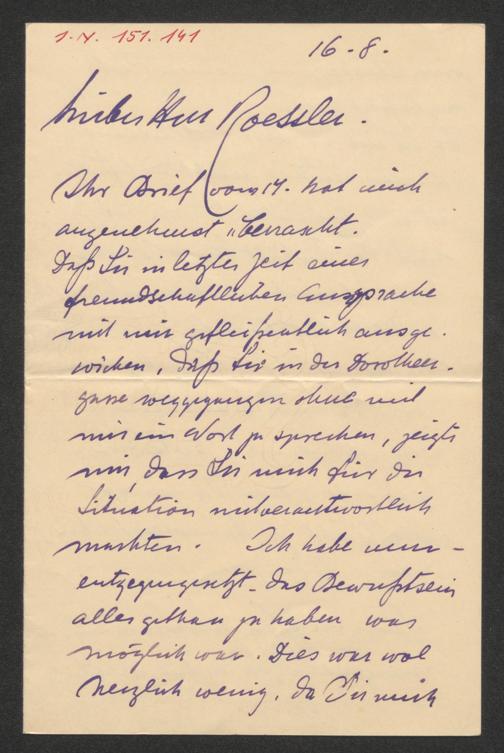 I.N. 151.141
16.-8.
Lieber Herr Roessler.
Ihr Brief vom 14. hat mich
angenehmst überrascht.
Daß Sie in letzter Zeit einer
freundschaftlichen Aussprache
mit mir geflissentlich ausge-
wichen, daß Sie in der Dorotheer-
gasse weggegangen ohne mit
mir ein Wort zu sprechen, zeigte
mir, dass Sie mich für die
Situation mitverantwortlich
machten. Ich habe nun
entgegengesetzt das Bewußtsein
alles gethan zu haben was
möglich war. Dies war wol
herzlich wenig, da Sie mich